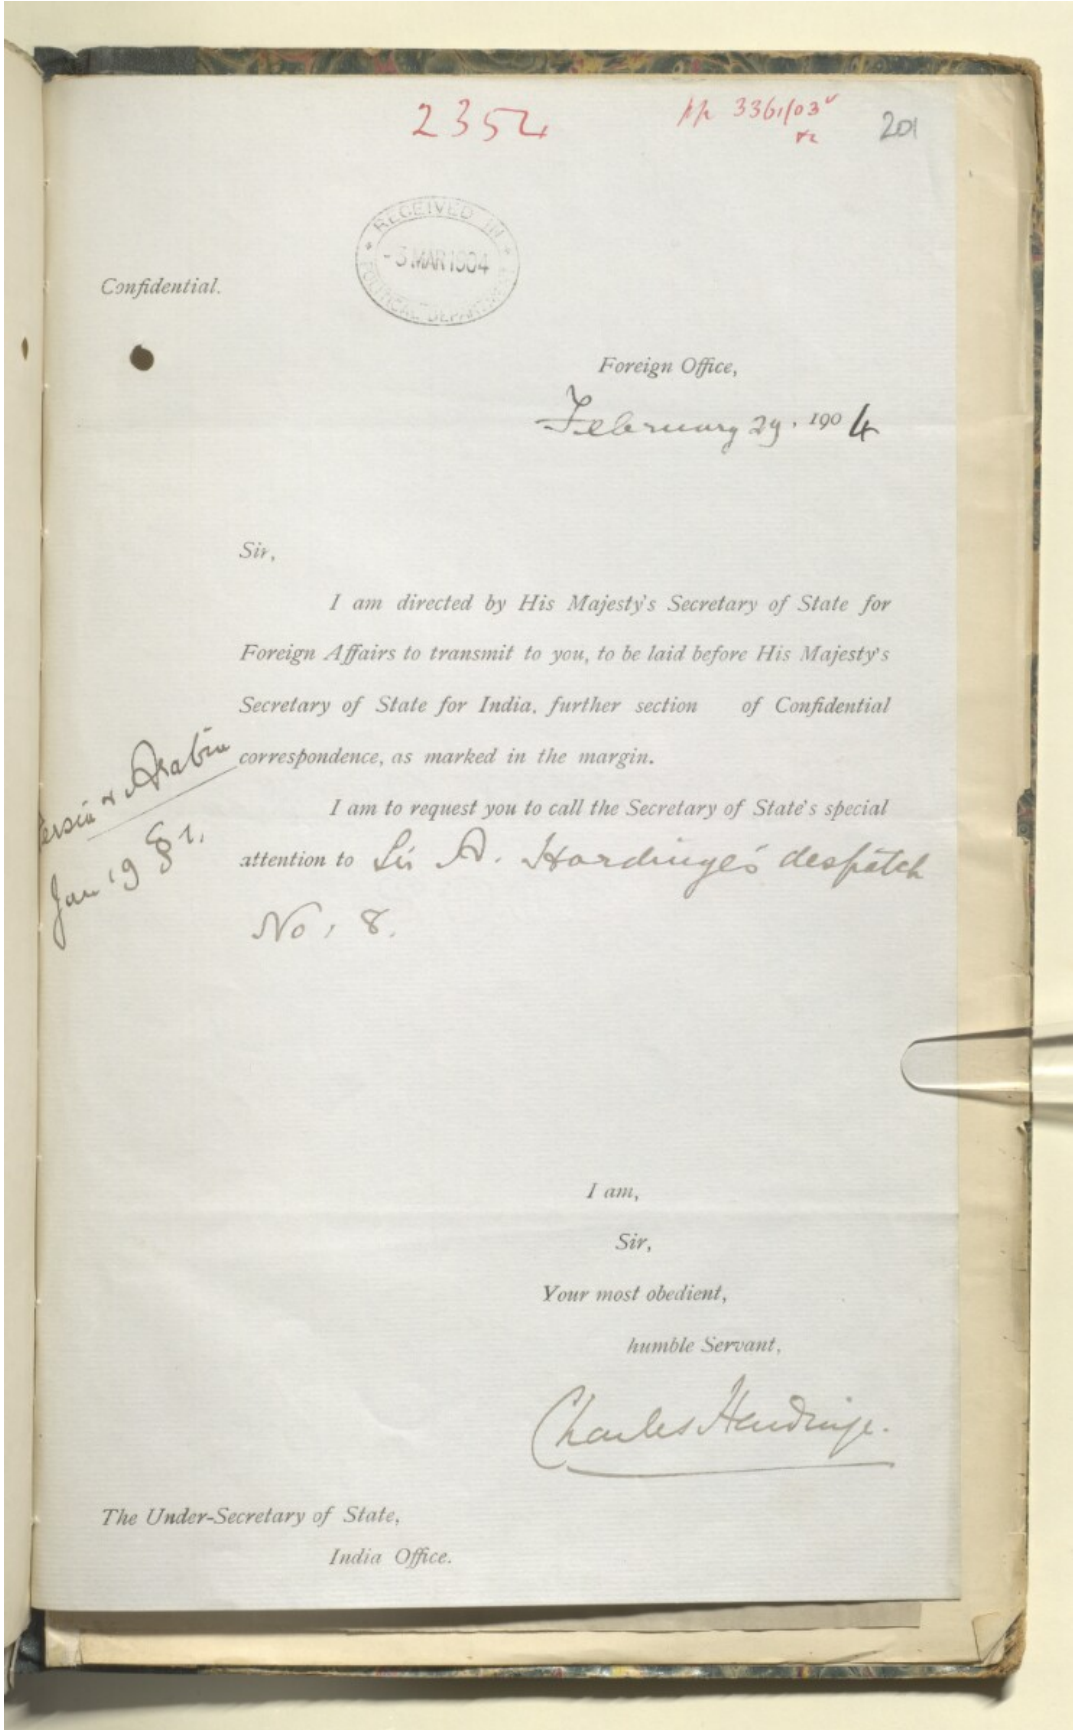 2354
pp 3361/03
201
RECEIVED IN
3 MAR 1904
POLITICAL DEPARTMENT
Confidential.
Foreign Office,
February 29. 1904
Sir,
I am directed by His Majesty's Secretary of State for
Foreign Affairs to transmit to you, to be laid before His Majesty's
Secretary of State for India, further section of Confidential
correspondence, as marked in the margin.
Persia & Arabia
Jan 19 § 1.
I am to request you to call the Secretary of State's special
attention to Sir A. Hardinge's despatch
No. 8.
I am,
Sir,
Your most obedient,
humble Servant,
Charles Hardinge.
The Under-Secretary of State,
India Office.